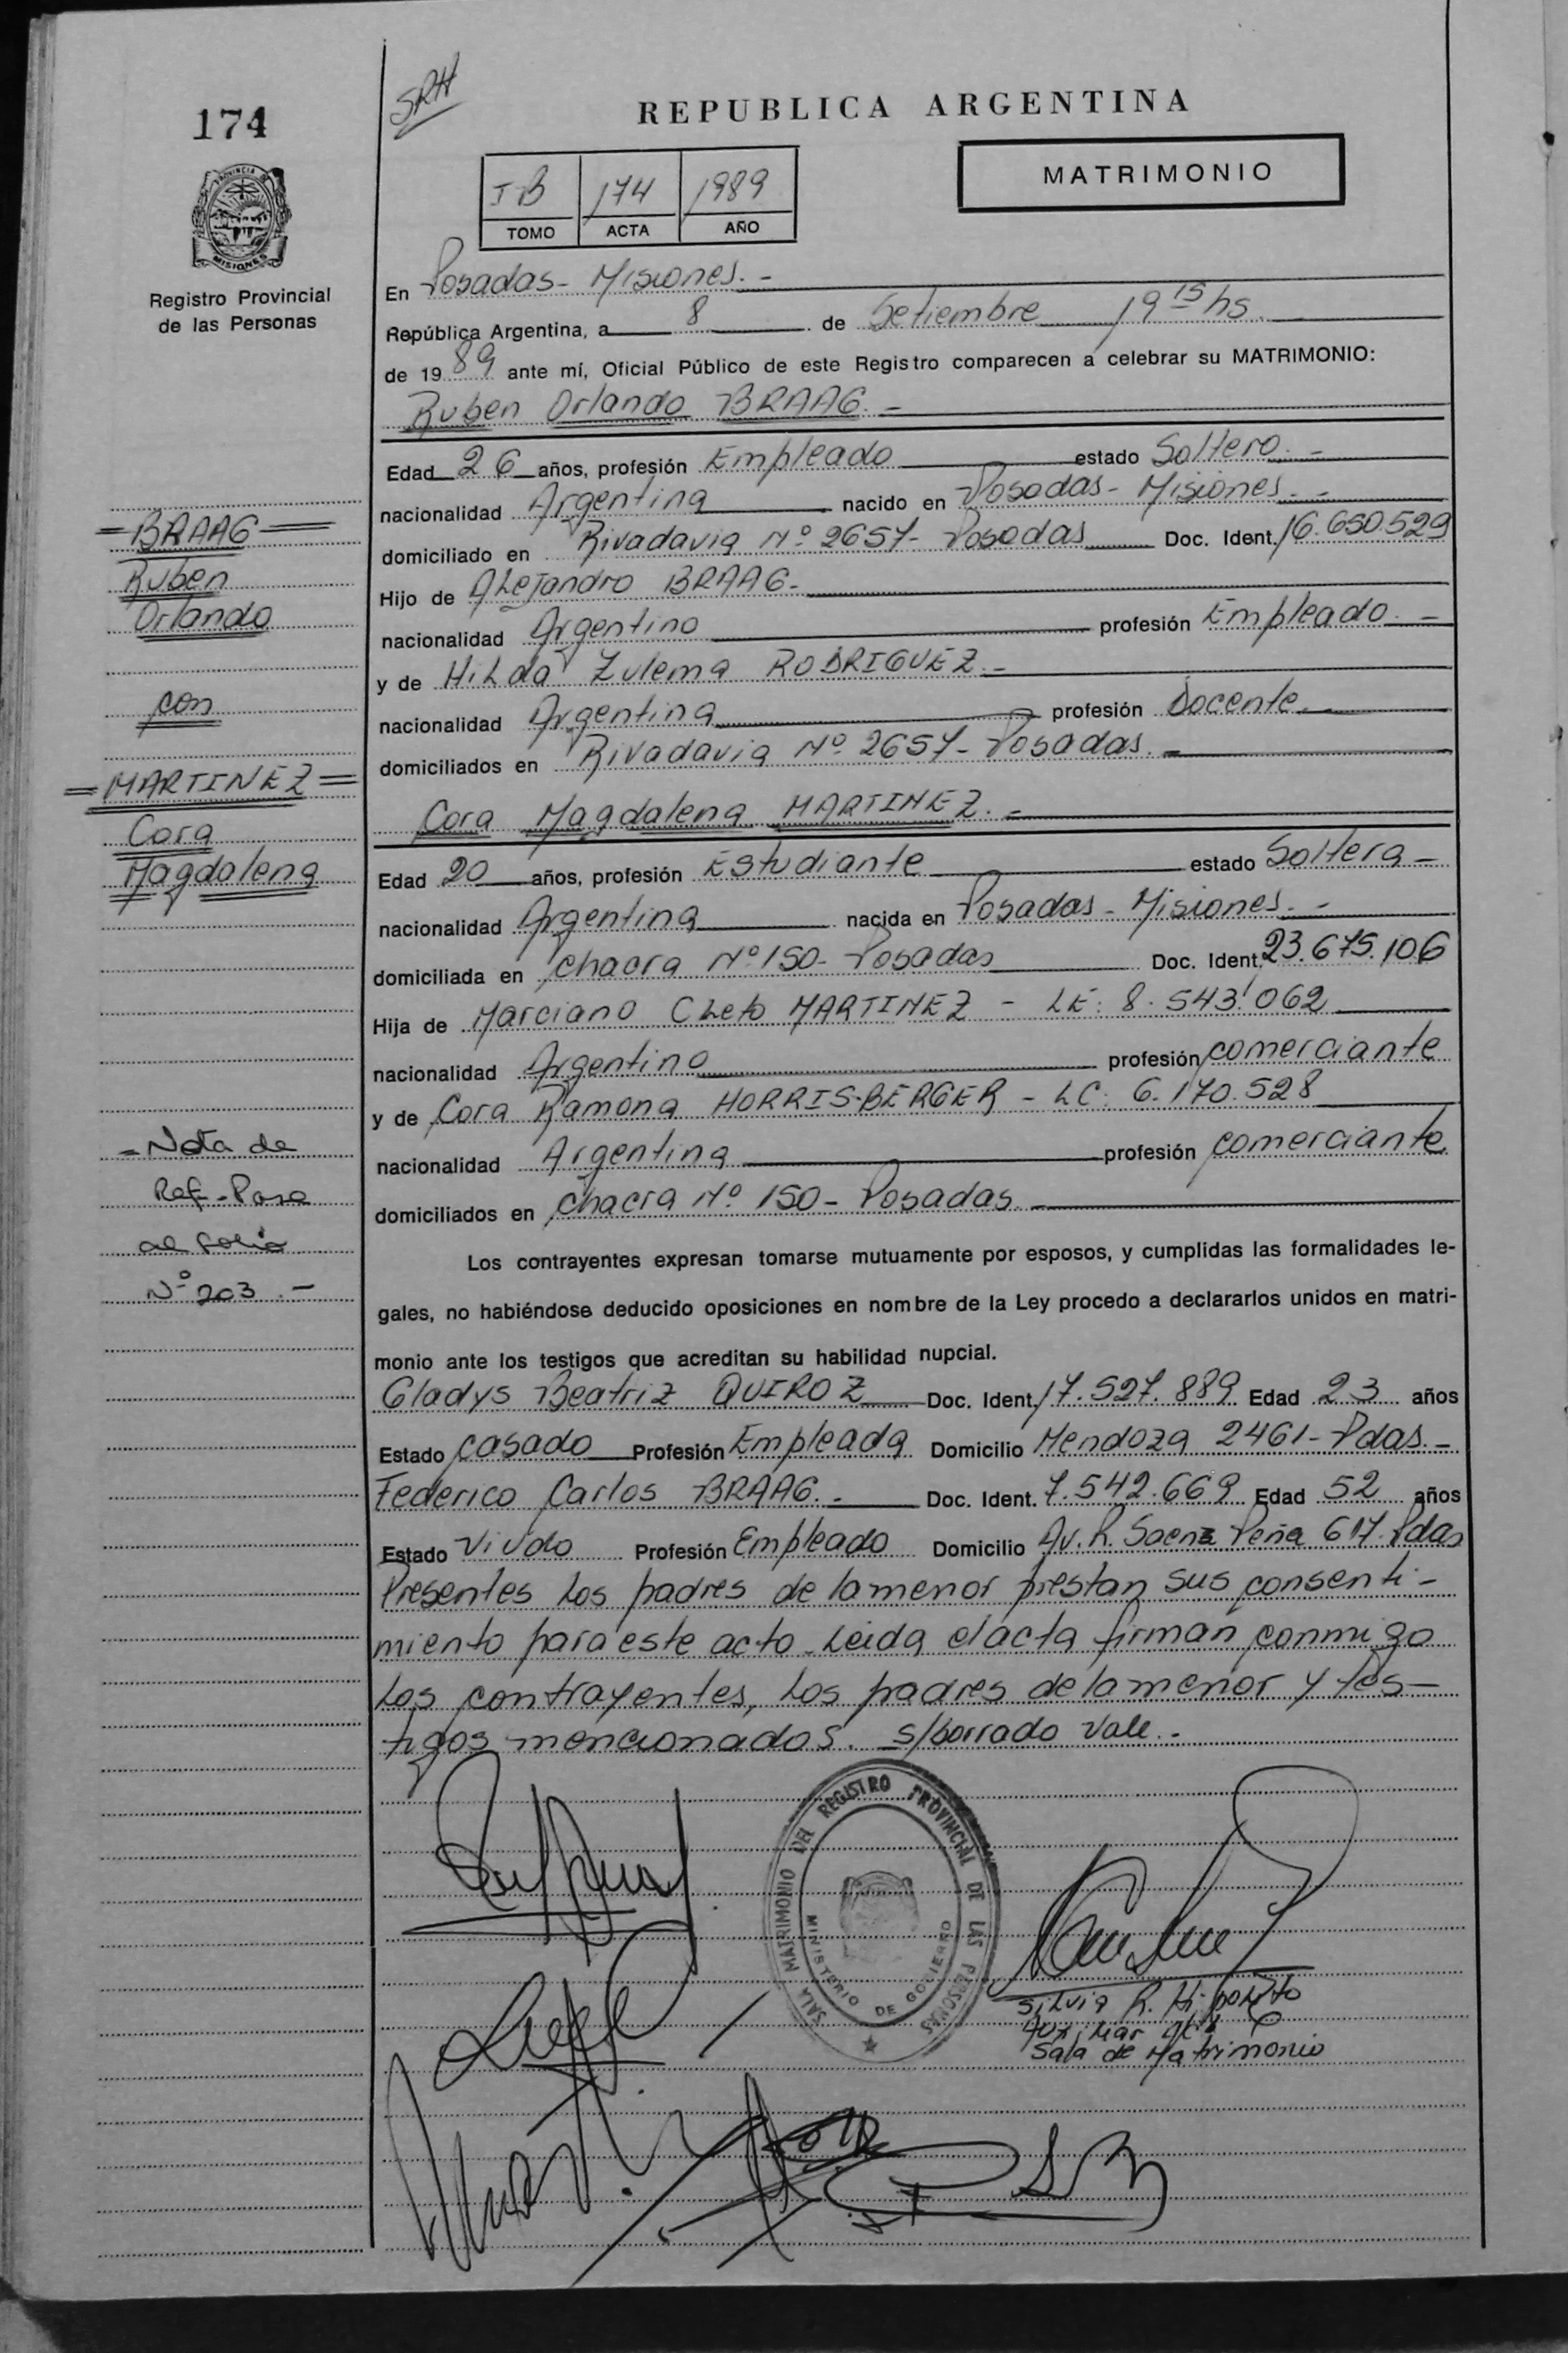 174
SRH
REPUBLICA ARGENTINA
I-B 174 1989
TOMO ACTA AÑO
MATRIMONIO
PROVINCIA DE
MISIONES
Registro Provincial
de las Personas
En Posadas - Misiones. -
República Argentina, a 8 de Setiembre 19 15 hs.
de 19 89 ante mí, Oficial Público de este Registro comparecen a celebrar su MATRIMONIO:
Ruben Orlando BRAAG. -
Edad 26 años, profesión Empleado estado Soltero. -
nacionalidad Argentina nacido en Posadas - Misiones. -
domiciliado en Rivadavia Nº 2657 - Posadas Doc. Ident. 16.650.529
Hijo de Alejandro BRAAG. -
nacionalidad Argentino profesión Empleado. -
y de Hilda Zulema RODRIGUEZ. -
nacionalidad Argentina profesión Docente. -
domiciliados en Rivadavia Nº 2657 - Posadas. -
Cora Magdalena MARTINEZ. -
Edad 20 años, profesión Estudiante estado Soltera -
nacionalidad Argentina nacida en Posadas - Misiones. -
domiciliada en Chacra Nº 150 - Posadas Doc. Ident. 23.675.106
Hija de Marciano Cleto MARTINEZ - LE: 8.543.062
nacionalidad Argentino profesión comerciante
y de Cora Ramona HORRIS-BERGER - LC: 6.170.528
nacionalidad Argentina profesión comerciante
domiciliados en Chacra Nº 150 - Posadas. -
Los contrayentes expresan tomarse mutuamente por esposos, y cumplidas las formalidades le-
gales, no habiéndose deducido oposiciones en nombre de la Ley procedo a declararlos unidos en matri-
monio ante los testigos que acreditan su habilidad nupcial.
Gladys Beatriz QUIROZ Doc. Ident. 17.527.889 Edad 23 años
Estado casado Profesión Empleada Domicilio Mendoza 2461 - Pdas. -
Federico Carlos BRAAG. - Doc. Ident. 7.542.669 Edad 52 años
Estado Viudo Profesión Empleado Domicilio Av. R. Saenz Peña 617. Pdas
Presentes los padres de la menor prestan sus consenti-
miento para este acto. Leida el acta firman conmigo
los contrayentes, los padres de la menor y tes-
tigos mencionados. s/borrado Vale. -
= BRAAG =
Ruben
Orlando
con
= MARTINEZ =
Cora
Magdalena
= Nota de
Ref - Pasa
al folio
Nº 203. -
SALA MATRIMONIO DEL REGISTRO PROVINCIAL DE LAS PERSONAS
MINISTERIO DE GOBIERNO
Silvia R. Hipolito
Sala de Matrimonio